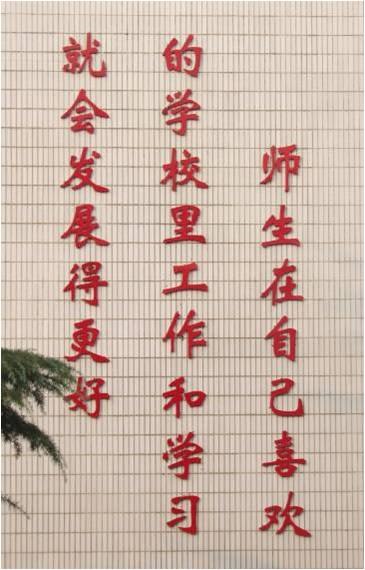 师生在自己喜欢
的学校里工作和学习
就会发展得更好